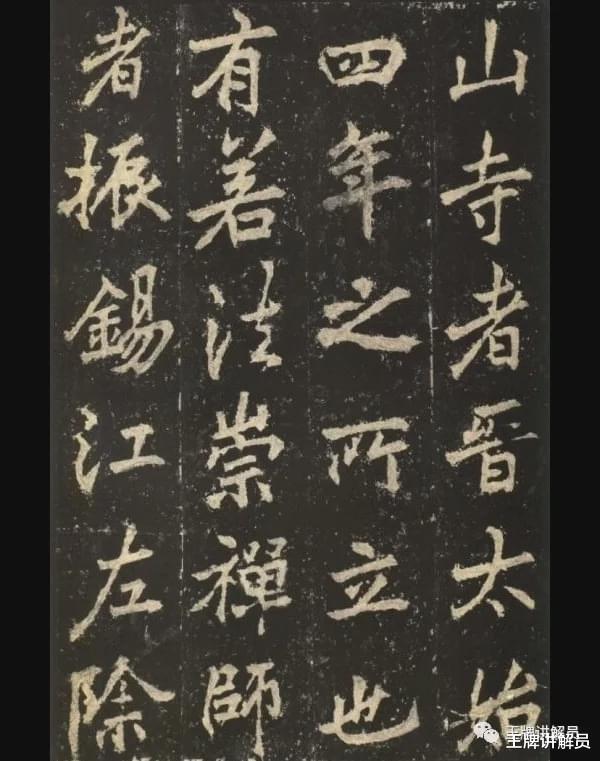 山寺者晉太始
四年之所立也
有若法崇禪師
者振錫江左除
王牌讲解员
王牌讲解员